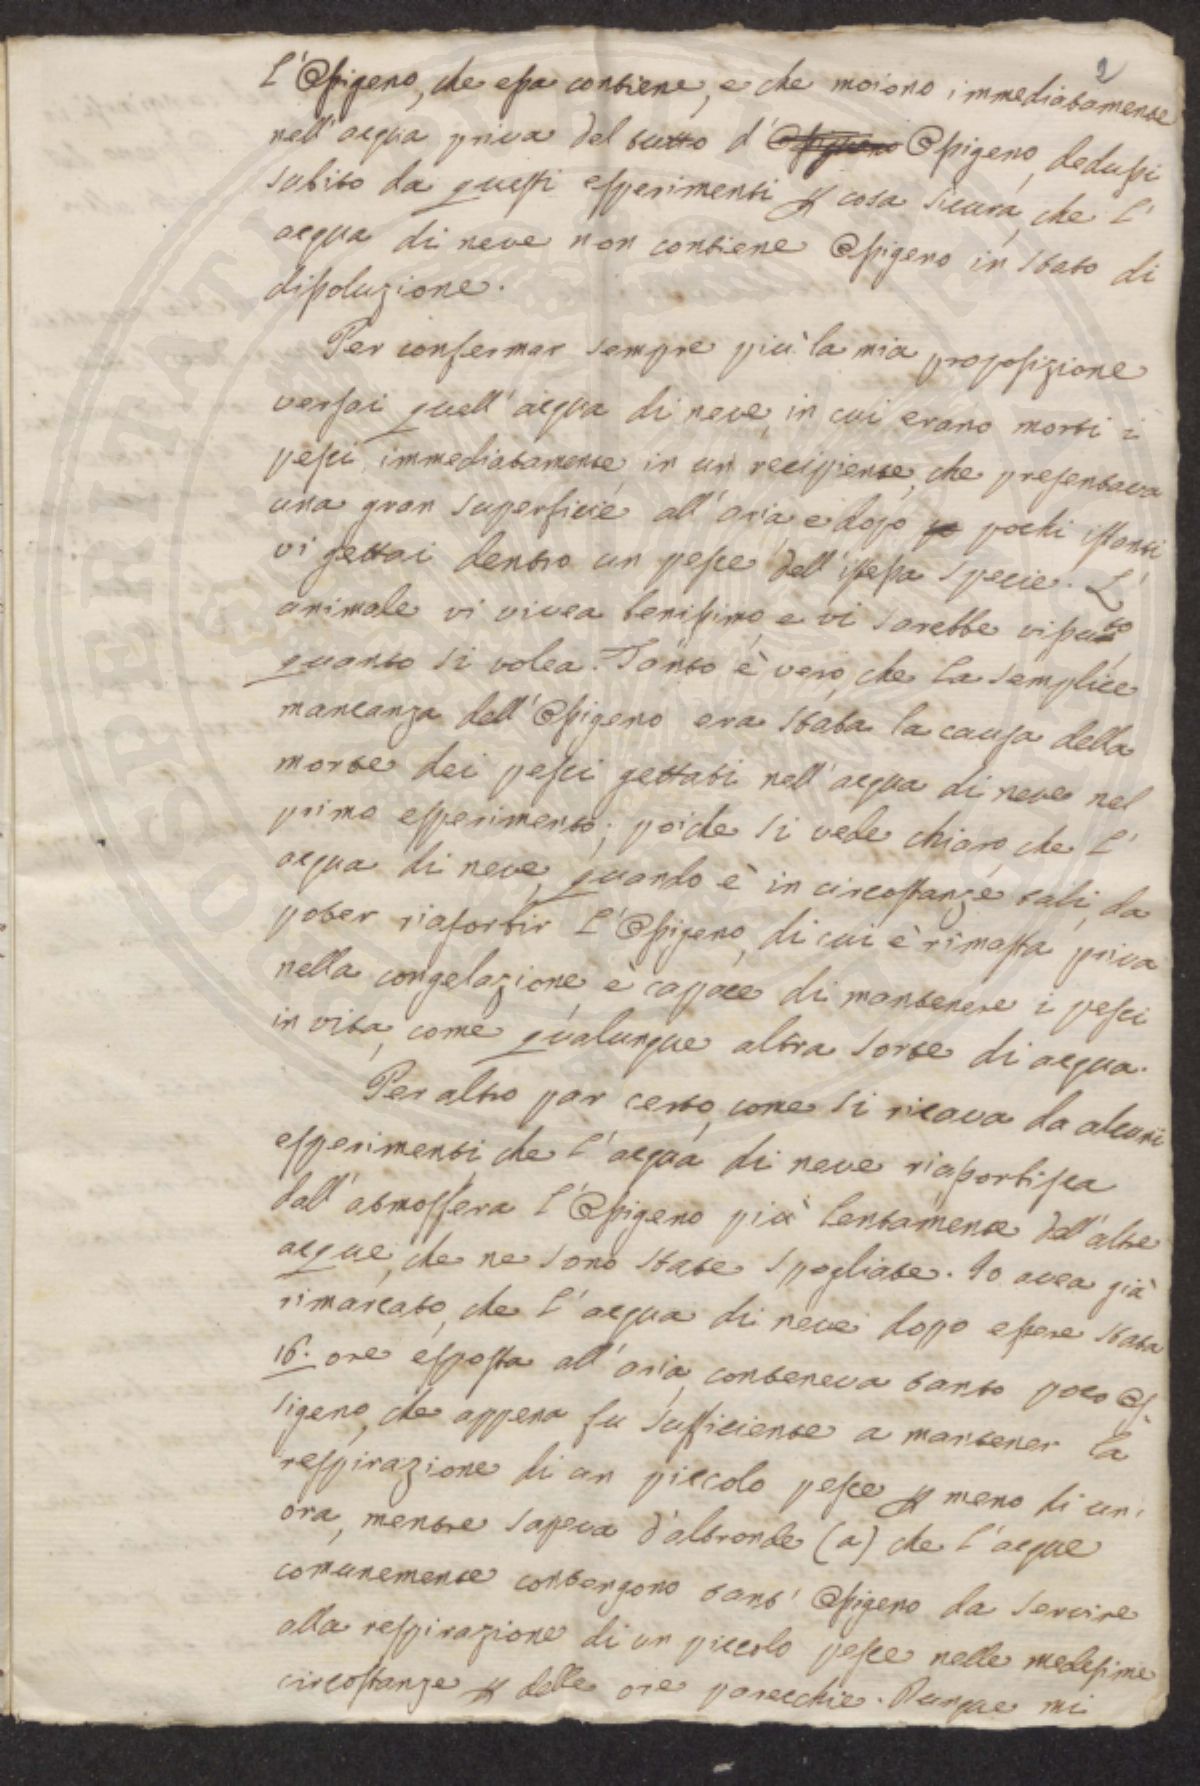 2
l'Ossigeno, che essa contiene, e che moiono immediatamente
nell'acqua priva del tutto d' Ossigeno Ossigeno, dedussi
subito da questi esperimenti p cosa sicura, che l'
acqua di neve non contiene Ossigeno in stato di
dissoluzione.
Per confermar sempre più la mia proposizione
versai quell'acqua di neve, in cui erano morti i
pesci immediatamente, in un recipiente, che presentava
una gran superficie all'aria, e dopo po pochi istanti
vi gettai dentro un pesce dell'istessa specie. L'
animale vi vivea benissimo, e vi sarebbe vissuto
quanto si volea. Tanto è vero, che la semplice
mancanza dell'Ossigeno era stata la causa della
morte dei pesci gettati nell'acqua di neve nel
primo esperimento; poiche si vede chiaro, che l'
acqua di neve, quando è in circostanze tali, da
poter riassortir l'Ossigeno, di cui è rimasta priva
nella congelazione, è capace di mantenere i pesci
in vita, come qualunque altra sorte di acqua.
Per altro par certo, come si ricava da alcuni
esperimenti che l'acqua di neve riassortisca
dall'atmosfera l'Ossigeno più lentamente dell'altre
acque, che ne sono state spogliate. Io avea già
rimarcato, che l'acqua di neve dopo essere stata
16. ore esposta all'aria, conteneva tanto poco Os-
sigeno, che appena fu sufficiente a mantener la
respirazione di un piccolo pesce p meno di un'
ora, mentre sapeva d'altronde (a) che l'acque
comunemente contengono tant' Ossigeno da servire
alla respirazione di un piccolo pesce nelle medesime
circostanze p delle ore parecchie. Dunque mi